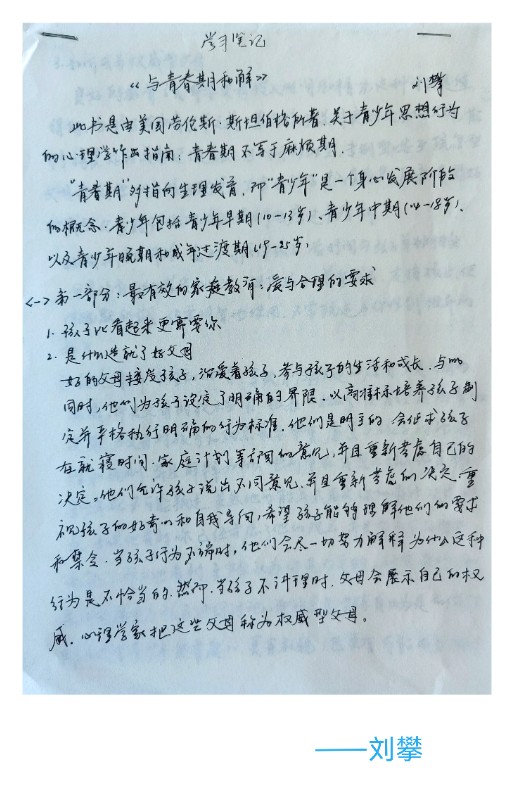 学习笔记
《与青春期和解》 刘攀
此书是由美国劳伦斯·斯坦伯格所著.关于青少年思想行为
的心理学作品指南.青春期不等于麻烦期.
"青春期"对指向生理发育,即"青少年"是一个身心发展阶段
的概念.青少年包括青少年早期(10-13岁)、青少年中期(14-18岁)、
以及青少年晚期和成年过渡期(19-25岁).
<一>第一部分:最有效的家庭教育:爱与合理的要求
1.孩子比看起来更需要你
2.是什么造就了好父母
好的父母接受孩子,深爱着孩子,参与孩子的生活和成长.与此
同时,他们为孩子设定了明确的界限.以高标准培养孩子制
定并严格执行明确的行为标准.他们是明主的.会征求孩子
在就寝时间.家庭计划等方面的意见,并且重新考虑自己的
决定。他们允许孩子说出不同意见.并且重新考虑们决定.重
视孩子的好奇心和自我导向,希望孩子能够理解他们的要求
和禁令.当孩子行为不端时,他们会尽一切努力解释为什么这种
行为是不恰当的.然即.当孩子不讲理时.父母会展示自己的权
威.心理学家把这些父母称为权威型父母。
——刘攀